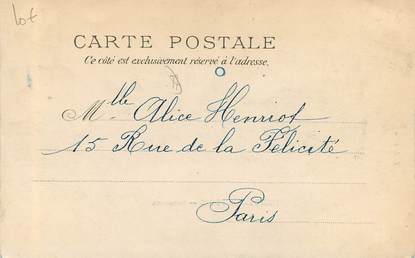 10€
CARTE POSTALE
Ce côté est exclusivement réservé à l'adresse.
Mlle Alice Henriot
15 Rue de la Félicité
Paris